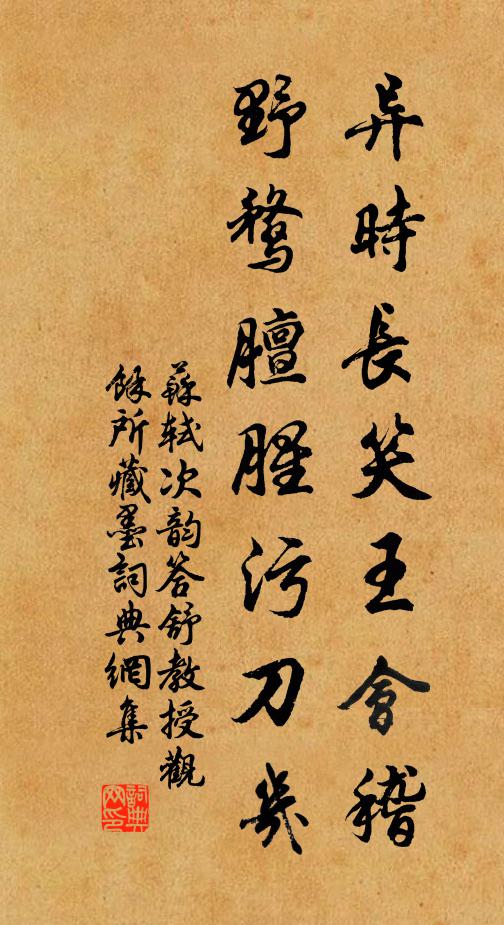 异時長笑王會稽
野鶩膻腥污刀几
蘇軾次韵答舒教授觀
餘所藏墨詞典網集
詞典网印